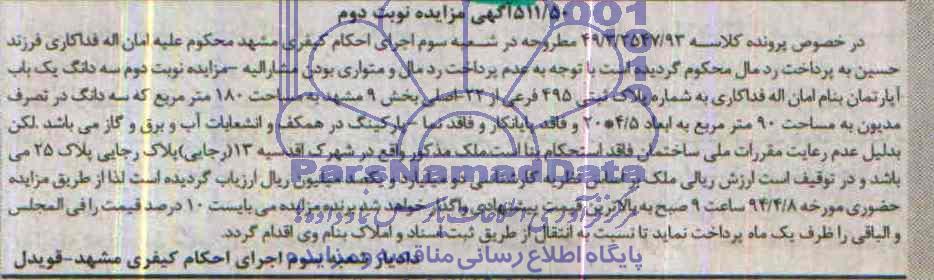 ۵۱۱/۵۰آگهی مزایده نوبت دوم
در خصوص پرونده کلاسه ۴۹/۳/۳۵۴۷/۹۳ مطروحه در شعبه سوم اجرای احکام کیفری مشهد محکوم علیه امان اله فداکاری فرزند
حسین به پرداخت رد مال محکوم گردیده است با توجه به عدم پرداخت رد مال و متواری بودن مشارالیه -مزایده نوبت دوم سه دانگ یک باب
آپارتمان بنام امان اله فداکاری به شماره پلاک ثبتی ۴۹۵ فرعی از ۲۲-اصلی بخش ۹ مشهد به مساحت ۱۸۰ متر مربع که سه دانگ در تصرف
مدیون به مساحت ۹۰ متر مربع به ابعاد ۴/۵*۲۰ و فاقد پایانکار و فاقد نما -پارکینگ در همکف و انشعابات آب و برق و گاز می باشد .لکن
بدلیل عدم رعایت مقررات ملی ساختمان فاقد استحکام بنا است.ملک مذکور واقع در شهرک اقدسیه ۱۳(رجایی)پلاک رجایی پلاک ۲۵ می
باشد و در توقیف است ارزش ریالی ملک نظریه کارشناسی دو میلیارد و یکصد میلیون ریال ارزیاب گردیده است لذا از طریق مزایده
حضوری مورخه ۹۴/۴/۸ ساعت ۹ صبح به بالاترین قیمت پیشنهادی واگذار خواهد شد برنده مزایده می بایست ۱۰ درصد قیمت را فی المجلس
و الباقی را ظرف یک ماه پرداخت نماید تا نسبت به انتقال از طریق ثبت اسناد و املاک بنام وی اقدام گردد.
دادیار شعبه سوم اجرای احکام کیفری مشهد-قویدل
ParsNamadData
پایگاه اطلاع رسانی مناقصه و مزایده